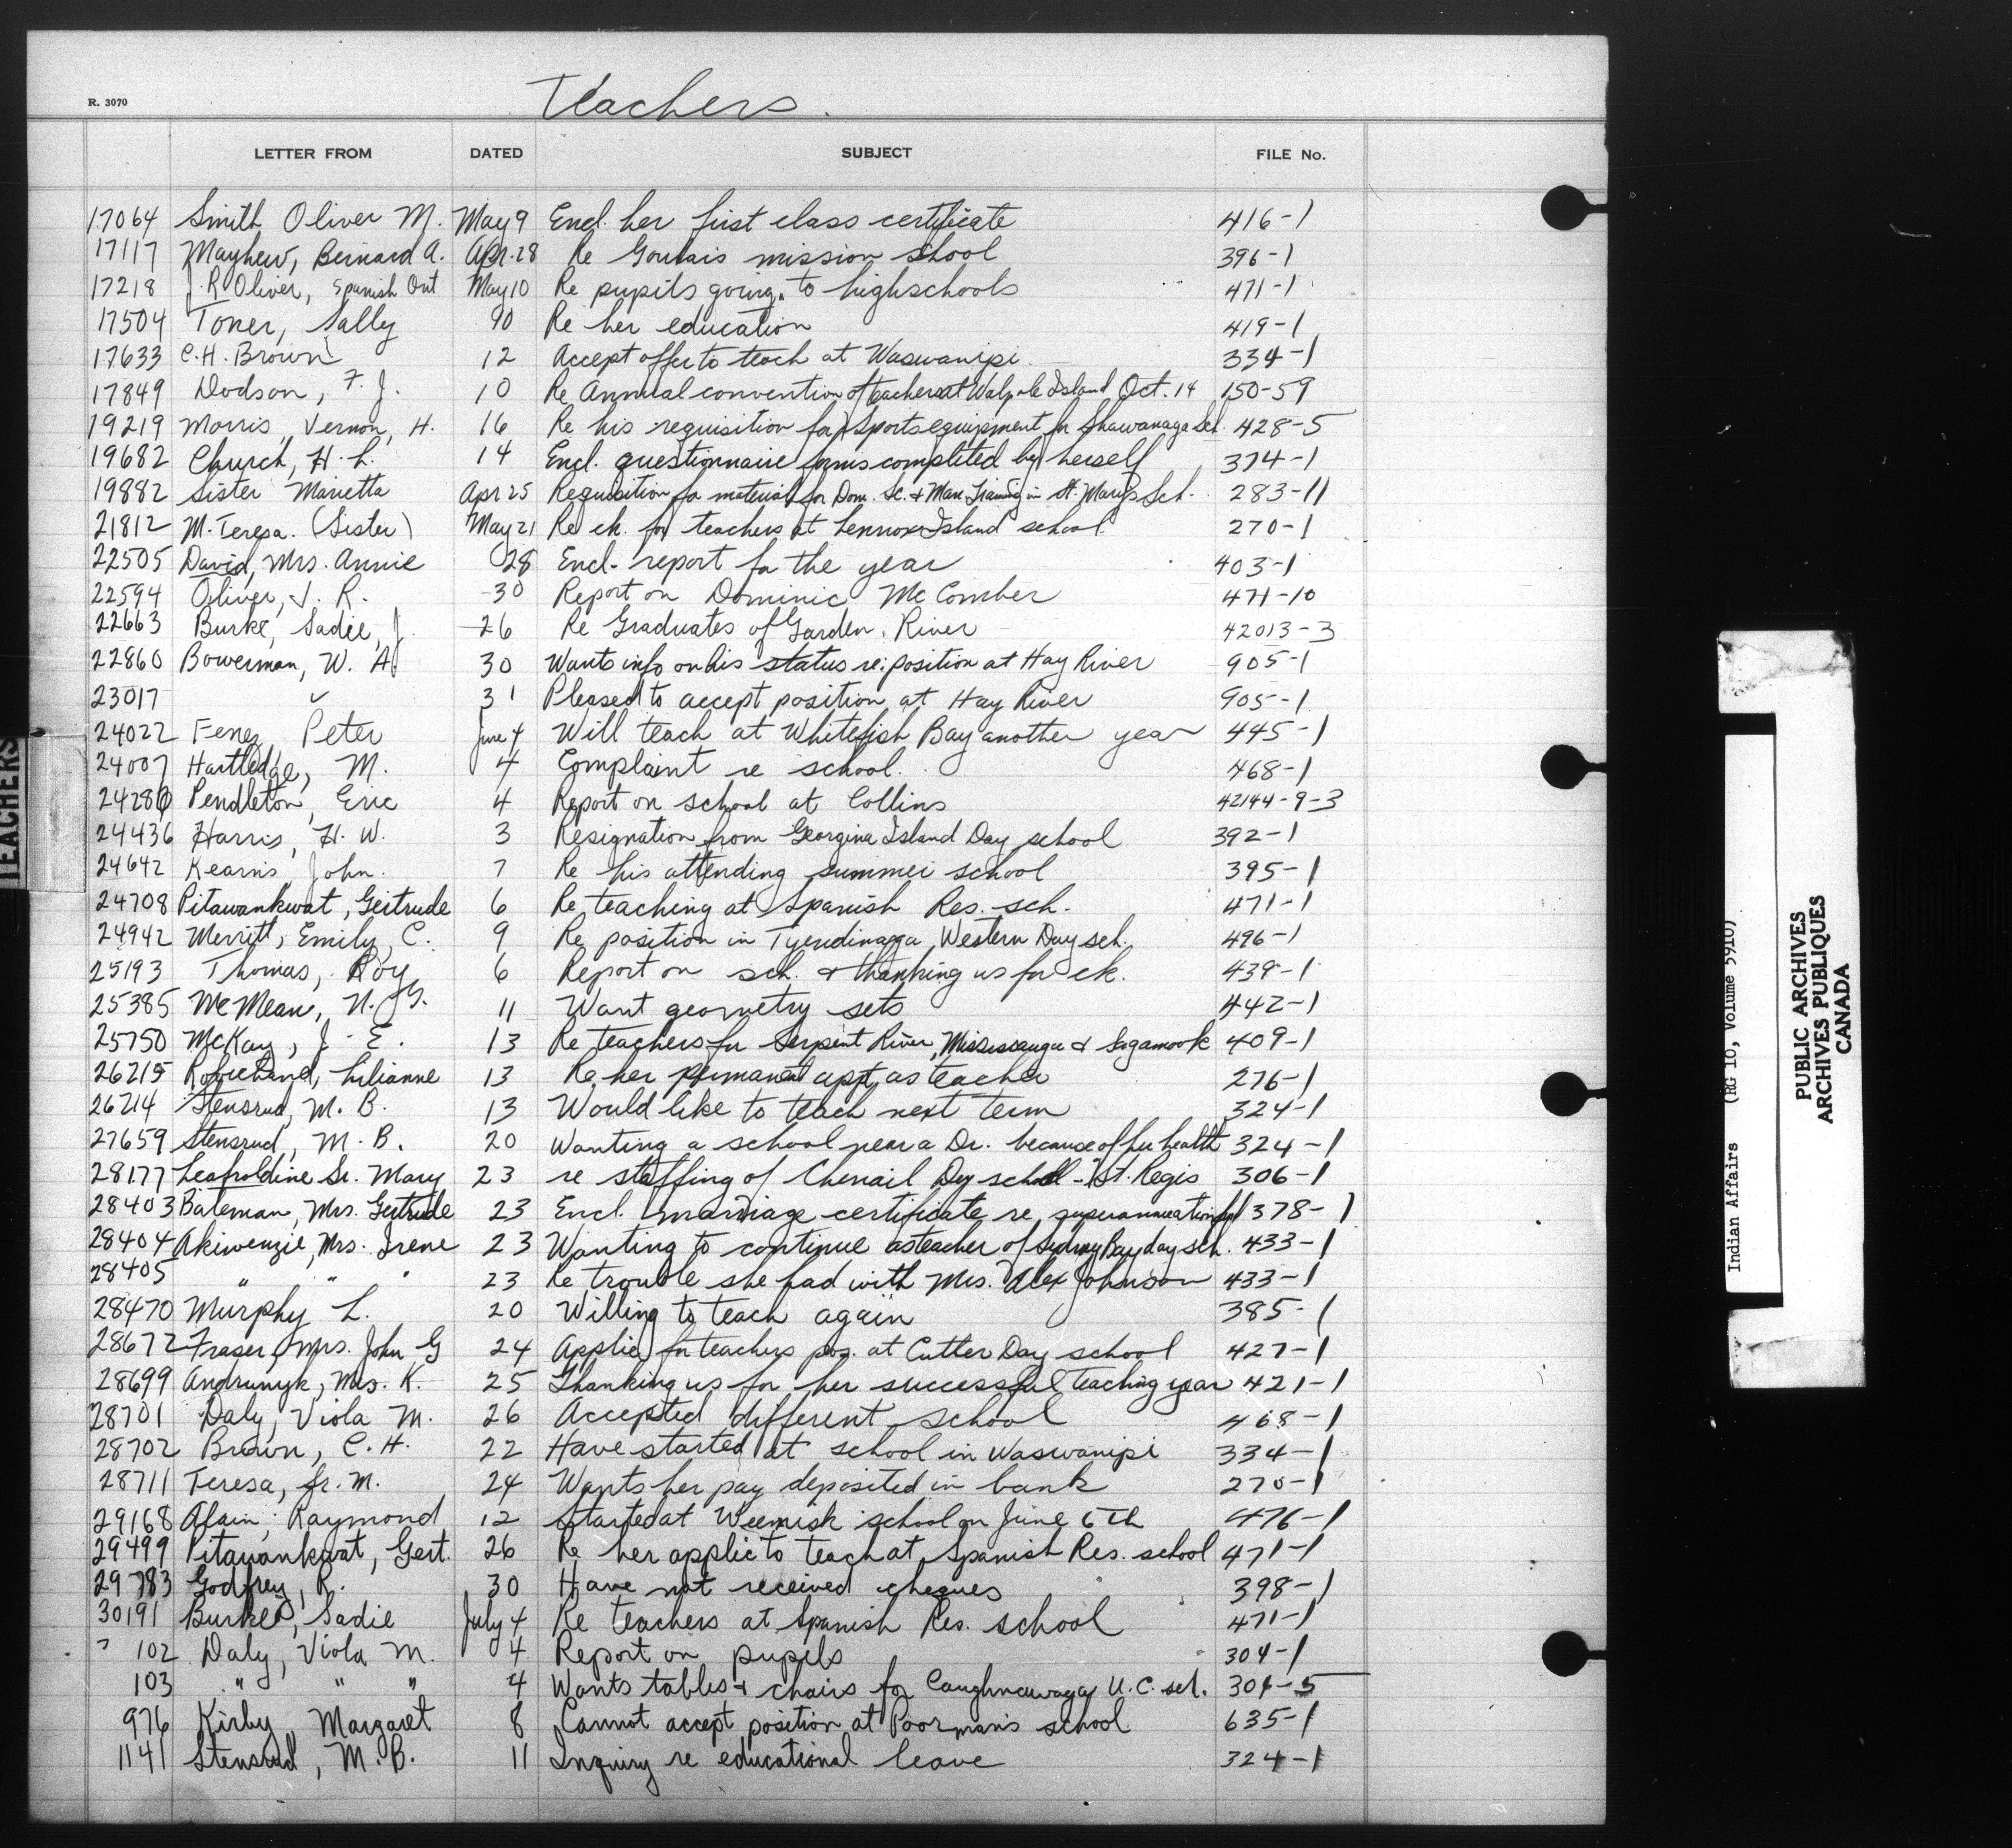 Teachers.
R. 3070
LETTER FROM DATED SUBJECT FILE No.
17064 Smith Oliver M. May 9 Encl. her first class certificate 416-1
17117 Mayhew, Bernard A. Apr. 28 Re Goulais mission school 396-1
17218 J. R. Oliver, Spanish Ont May 10 Re pupils going to highschools 471-1
17504 Toner, Sally 90 Re her education 419-1
17633 C. H. Brown 12 Accept offer to teach at Waswanipi 334-1
17849 Dodson, F. J. 10 Re Annual convention of teachers at Walpole Island Oct. 14 150-59
19219 Morris, Vernon, H. 16 Re his requisition for Sports equipment for Shawanaga Sch. 428-5
19682 Church, H. L. 14 Encl. questionnaire forms completed by herself 374-1
19882 Sister Marietta Apr 25 Requisition for material for Dom. Sc. & Man. Training in St. Mary's Sch. 283-11
21812 M. Teresa. (Sister) May 21 Re ck. for teachers at Lennox Island school 270-1
22505 David, Mrs. Annie 28 Encl. report for the year 403-1
22594 Oliver, J. R. 30 Report on Dominic McComber 471-10
22663 Burke, Sadie, J. 26 Re Graduates of Garden River 42013-3
22860 Bowerman, W. A. 30 Wants info on his status re: position at Hay River 905-1
23017 " 31 Pleased to accept position at Hay River 905-1
24022 Peter June 4 Will teach at Whitefish Bay another year 445-1
24007 Hartledge, M. 4 Complaint re school. 468-1
24280 Pendleton, Eric 4 Report on school at Collins 42144-9-3
24436 Harris, H. W. 3 Resignation from Georgina Island Day school 392-1
24642 Kearns, John. 7 Re his attending summer school 395-1
24708 Pitawankwat, Gertrude 6 Re teaching at Spanish Res. sch. 471-1
24942 Merritt, Emily, C. 9 Re position in Tyendinaga Western Day sch. 496-1
25193 Thomas, Roy 6 Report on sch. & thanking us for ck. 439-1
25385 McMean, N. G. 11 Want geometry sets 442-1
25750 McKay, J. E. 13 Re teachers for Serpent River, Mississauga & Sagamook 409-1
26215 Robichaud, Lilianne 13 Re her permanent appt. as teacher 276-1
26214 Stensrud, M. B. 13 Would like to teach next term 324-1
27659 Stensrud, M. B. 20 Wanting a school near a Dr. because of her health 324-1
28177 Leapoldine Sr. Mary 23 re staffing of Chenail Day school - St. Regis 306-1
28403 Bateman, Mrs. Gertrude 23 Encl. marriage certificate re superannuation 378-1
28404 Akiwenzie, Mrs. Irene 23 Wanting to continue as teacher of Sydney Bay day sch. 433-1
28405 " " " 23 Re trouble she had with Mrs. Alex Johnson 433-1
28470 Murphy L. 20 Willing to teach again 385-1
28672 Fraser, Mrs. John G 24 Applied for teachers pos. at Cutler Day school 427-1
28699 Andrunyk, Mrs. K. 25 Thanking us for her successful teaching year 421-1
28701 Daly, Viola M. 26 Accepted different school 468-1
28702 Brown, C. H. 22 Have started at school in Waswanipi 334-1
28711 Teresa, Sr. M. 24 Wants her pay deposited in bank 270-1
29168 Alain, Raymond 12 Started at Weenusk school on June 6th 476-1
29499 Pitawankwat, Gert. 26 Re her applic to teach at Spanish Res. school 471-1
29783 Godfrey, R. 30 Have not received cheques 398-1
30191 Burke, Sadie July 4 Re teachers at Spanish Res. school 471-1
102 Daly, Viola M. 4 Report on pupils 304-1
103 " " " 4 Wants tables & chairs for Caughnawaga U.C. sch. 304-5
976 Kirby, Margaret 8 Cannot accept position at Poorman's school 635-1
1141 Stensrud, M. B. 11 Inquiry re educational leave 324-1
TEACHERS
Indian Affairs (RG 10, Volume 5910)
PUBLIC ARCHIVES
ARCHIVES PUBLIQUES
CANADA